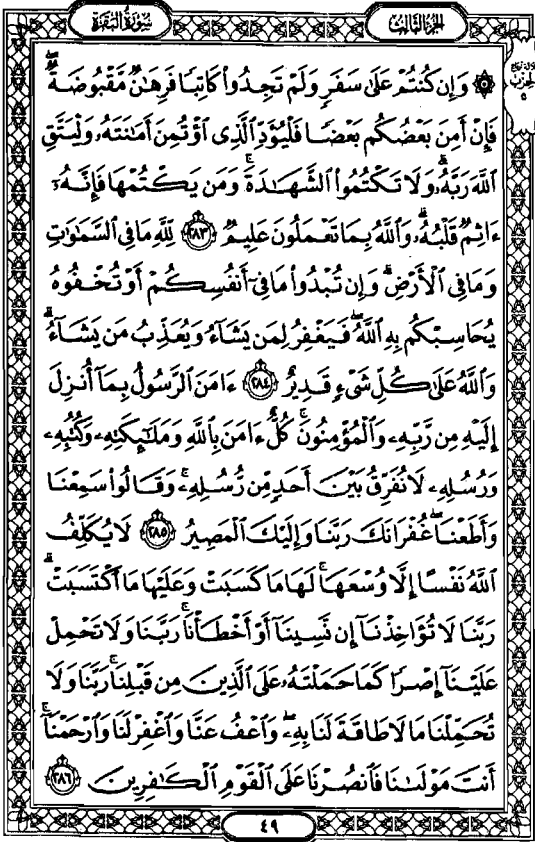 الجزء الثالث
سورة البقرة
ثلاثة أرباع
الحزب
٥
۞ وَإِن كُنتُمْ عَلَىٰ سَفَرٍ وَلَمْ تَجِدُوا۟ كَاتِبًا فَرِهَٰنٌ مَّقْبُوضَةٌ ۖ
فَإِنْ أَمِنَ بَعْضُكُم بَعْضًا فَلْيُؤَدِّ ٱلَّذِى ٱؤْتُمِنَ أَمَٰنَتَهُۥ وَلْيَتَّقِ
ٱللَّهَ رَبَّهُۥ ۗ وَلَا تَكْتُمُوا۟ ٱلشَّهَٰدَةَ ۚ وَمَن يَكْتُمْهَا فَإِنَّهُۥٓ
ءَاثِمٌ قَلْبُهُۥ ۗ وَٱللَّهُ بِمَا تَعْمَلُونَ عَلِيمٌ ٢٨٣ لِّلَّهِ مَا فِى ٱلسَّمَٰوَٰتِ
وَمَا فِى ٱلْأَرْضِ ۗ وَإِن تُبْدُوا۟ مَا فِىٓ أَنفُسِكُمْ أَوْ تُخْفُوهُ
يُحَاسِبْكُم بِهِ ٱللَّهُ ۖ فَيَغْفِرُ لِمَن يَشَآءُ وَيُعَذِّبُ مَن يَشَآءُ ۗ
وَٱللَّهُ عَلَىٰ كُلِّ شَىْءٍ قَدِيرٌ ٢٨٤ ءَامَنَ ٱلرَّسُولُ بِمَآ أُنزِلَ
إِلَيْهِ مِن رَّبِّهِۦ وَٱلْمُؤْمِنُونَ ۚ كُلٌّ ءَامَنَ بِٱللَّهِ وَمَلَٰٓئِكَتِهِۦ وَكُتُبِهِۦ
وَرُسُلِهِۦ لَا نُفَرِّقُ بَيْنَ أَحَدٍ مِّن رُّسُلِهِۦ ۚ وَقَالُوا۟ سَمِعْنَا
وَأَطَعْنَا ۖ غُفْرَانَكَ رَبَّنَا وَإِلَيْكَ ٱلْمَصِيرُ ٢٨٥ لَا يُكَلِّفُ
ٱللَّهُ نَفْسًا إِلَّا وُسْعَهَا ۚ لَهَا مَا كَسَبَتْ وَعَلَيْهَا مَا ٱكْتَسَبَتْ ۗ
رَبَّنَا لَا تُؤَاخِذْنَآ إِن نَّسِينَآ أَوْ أَخْطَأْنَا ۚ رَبَّنَا وَلَا تَحْمِلْ
عَلَيْنَآ إِصْرًا كَمَا حَمَلْتَهُۥ عَلَى ٱلَّذِينَ مِن قَبْلِنَا ۚ رَبَّنَا وَلَا
تُحَمِّلْنَا مَا لَا طَاقَةَ لَنَا بِهِۦ ۖ وَٱعْفُ عَنَّا وَٱغْفِرْ لَنَا وَٱرْحَمْنَآ ۚ
أَنتَ مَوْلَىٰنَا فَٱنصُرْنَا عَلَى ٱلْقَوْمِ ٱلْكَٰفِرِينَ ٢٨٦
٤٩